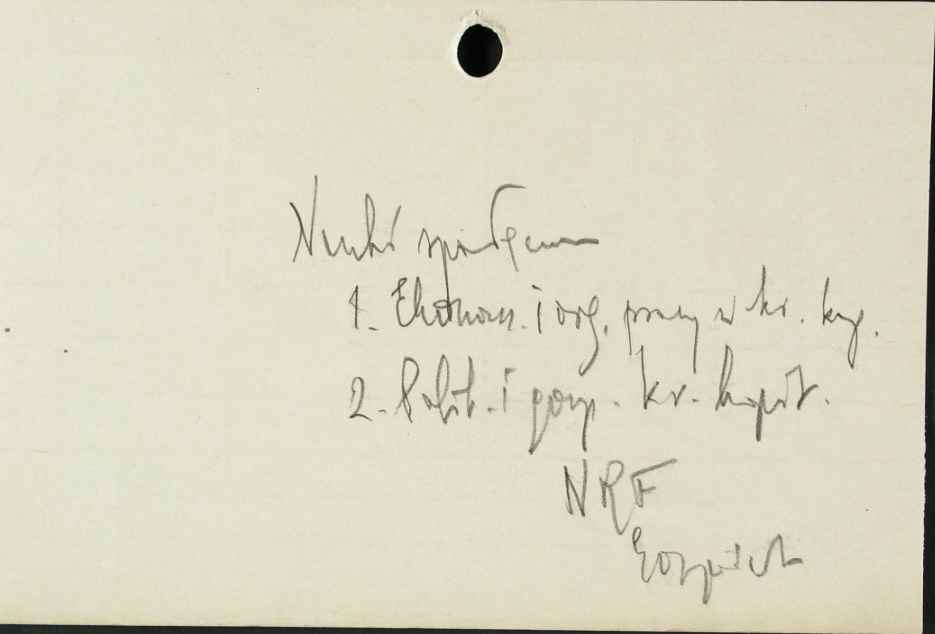 Nauki społeczne
1. Ekonom. i org. pracy w kr. kap.
2. Polit. i gosp. kr. kapit.
NRF